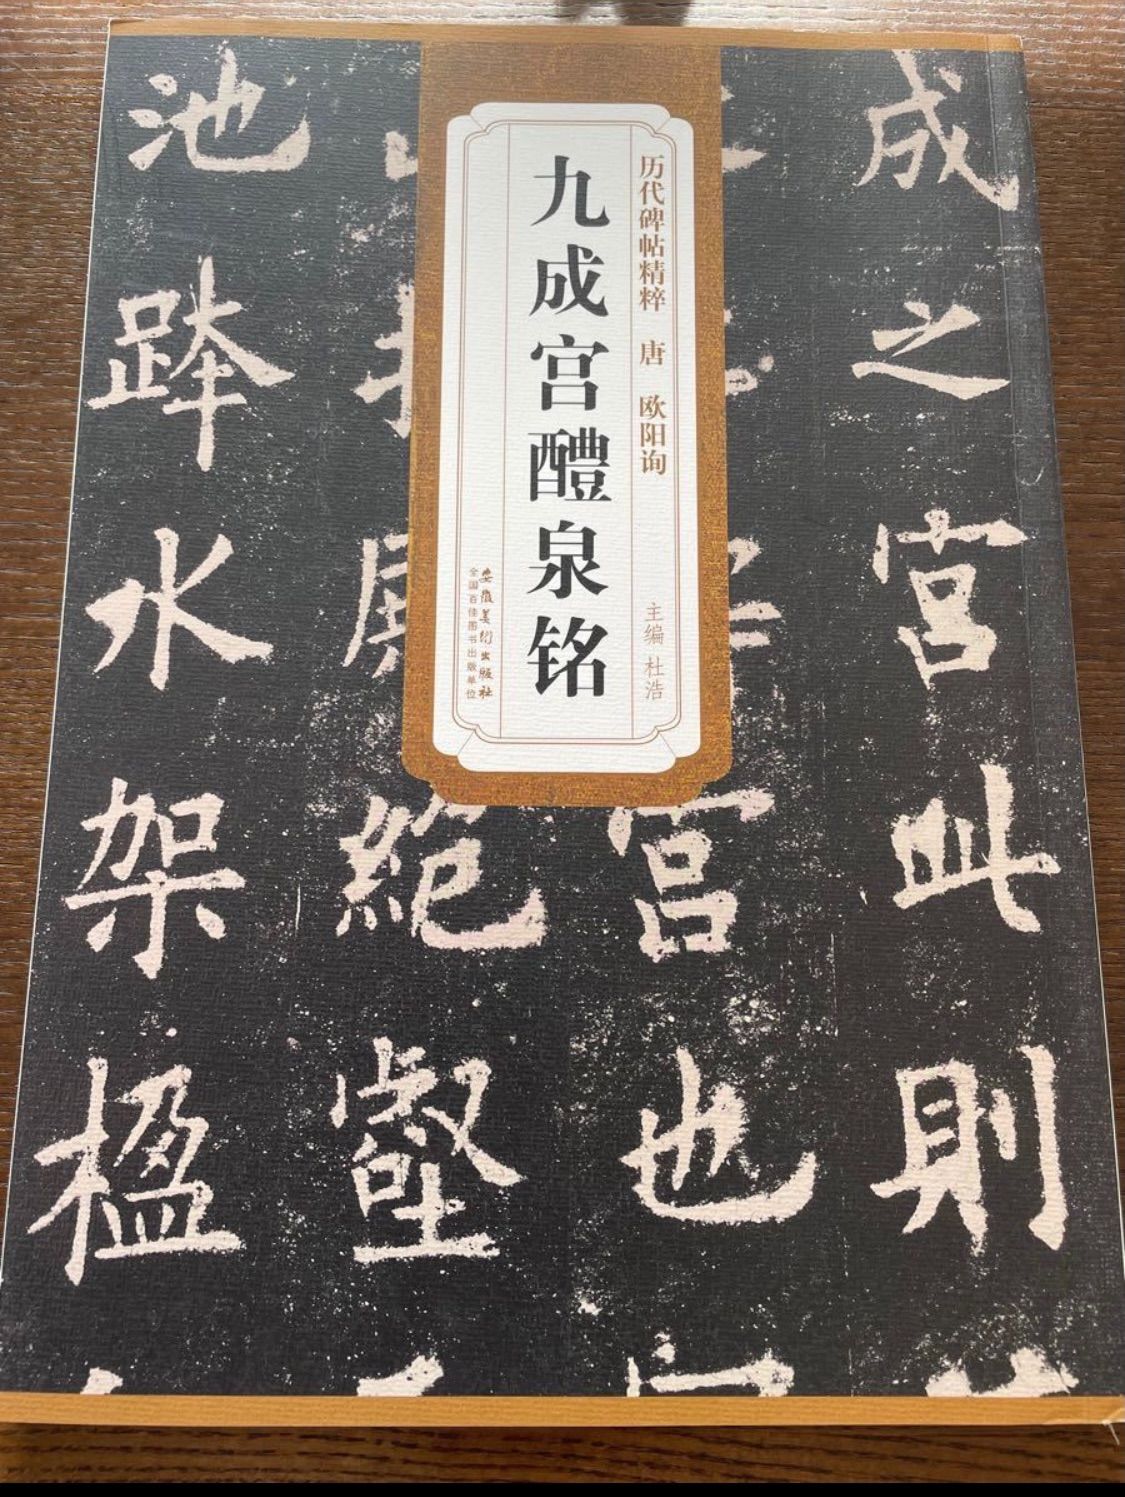 历代碑帖精粹 唐 欧阳询
主编 杜浩
九成宫醴泉铭
安徽美术出版社
全国百佳图书出版单位
成之宫此則
宫也
絶壑
池跸水架楹